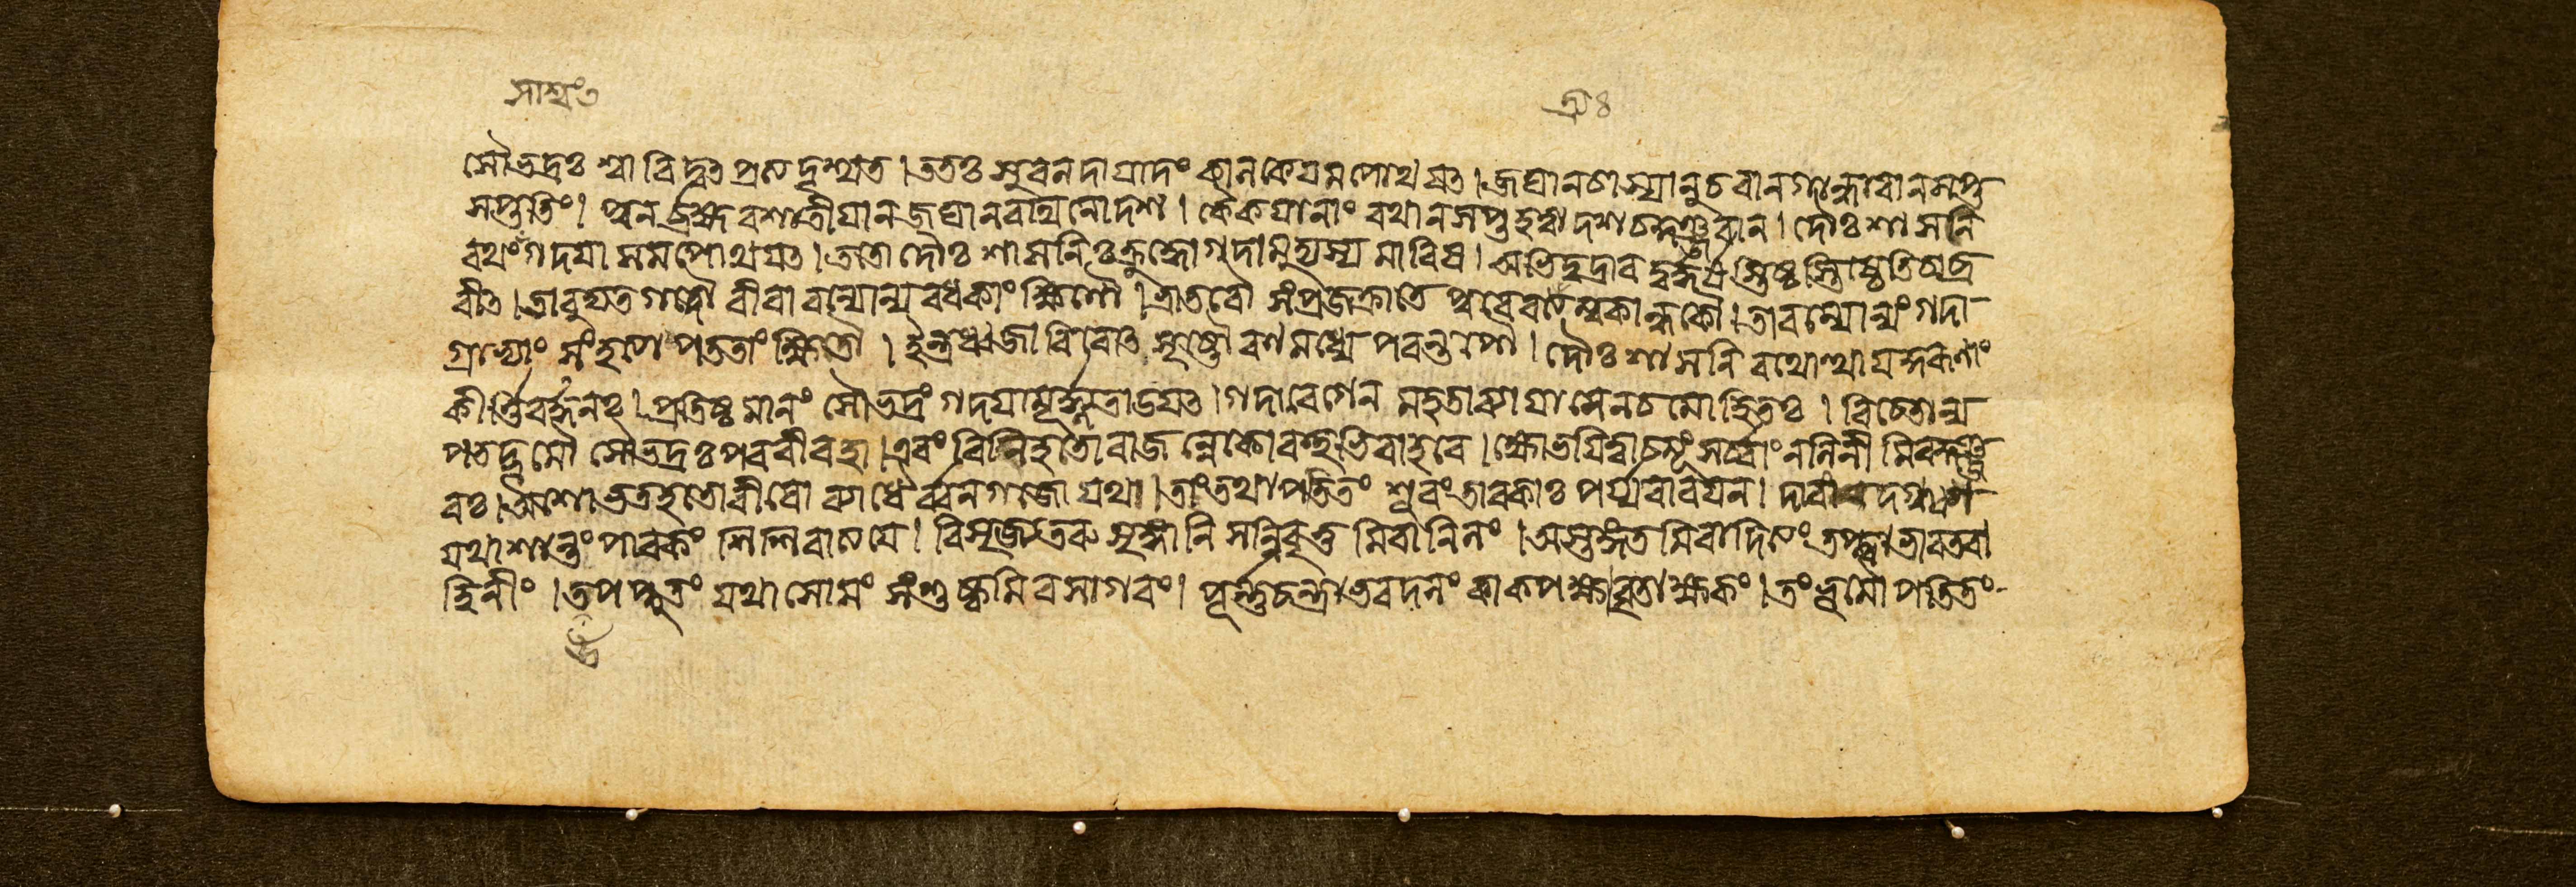 সাশ্বং৩
সৌভদ্রঃ শ্বাবিদ্বৎ প্রত্যদৃশ্যত।ততঃ সুবলদাযাদং কালকেযমপোথযৎ।জঘানচাস্যানুচরানগান্ধারানসপ্ত
সপ্ততিং। পুন ব্রহ্মবশাতীযানজঘানরথিনোদশ। কেকযানাং রথানসপ্তহত্বাদশচকুঞ্জরান। দৌঃশাসনি
রথংগদযাসমপোথযৎ।ততোদৌঃশাসনিঃক্রুদ্ধোগদামুদ্যম্যমারিষ। অভিদুদ্রাবদুর্দ্ধর্ষস্তিষ্ঠতিষ্ঠেতিচাব্র
বীৎ।তাবুদ্যতগদৌ বীরাবন্যোন্যবধকাংক্ষিণৌ।ভ্রাতৃব্যৌ সংপ্রজহ্রাতে পুরেবত্র্যম্বকান্ধকৌ।তাবন্যোন্যংগদা
গ্রাভ্যাং সংহত্যপতিতাংক্ষিতৌ। ইন্দ্রধ্বজাবিবোৎসৃষ্টৌ রণমধ্যে পরন্তপৌ। দৌঃশাসনি রথোত্থাযকুরূণাং
কীর্ত্তিবর্দ্ধনঃ।প্রতিষ্ঠমানং সৌভদ্রং গদযামূর্দ্ধ্ন্যতাডযৎ।গদাবেগেন মহতাব্যাযামেনচমোহিতঃ। বিচেতান্য
পতদ্ভূমৌ সৌভদ্রঃপরবীরহা।এবং বিনিহতোরাজন্নেকোবহুভিরাহবে। ক্ষোভযিত্বাচমূংসর্ব্বাংনলিনীমিবকুঞ্জ
রঃ।অশোভতহতোবীরো ব্যাধৈর্ব্বনগজো যথা।তংতথাপতিতং শূরংতাবকাঃ পর্য্যবারযন। দাবং দগ্ধ্বা
যথাশান্তং পাবকং শিশিরাত্যযে। বিমৃদ্যতরুশৃঙ্গানি সন্নিবৃত্তমিবানিলং।অস্তঙ্গতমিবাদিত্যংতপ্ত্বাভারতবা
হিনীং।উপপ্লুতং যথাসোমং সংশুষ্কমিবসাগরং। পূর্ণচন্দ্রাভবদনং কাকপক্ষবৃতাক্ষকং।তংভূমৌপতিতং